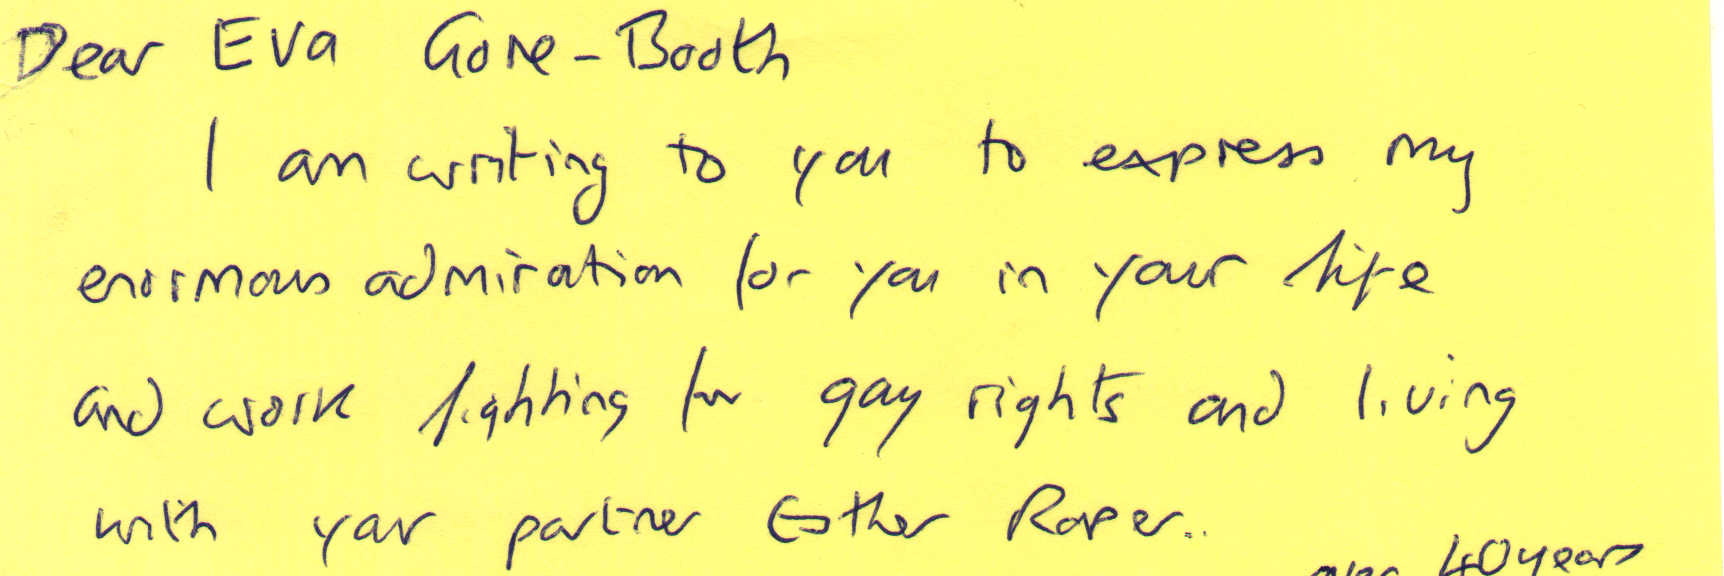 Dear Eva Gore-Booth
I am writing to you to express my
enormous admiration for you in your life
and work fighting for gay rights and living
with your partner Esther Roper..
over 40 years